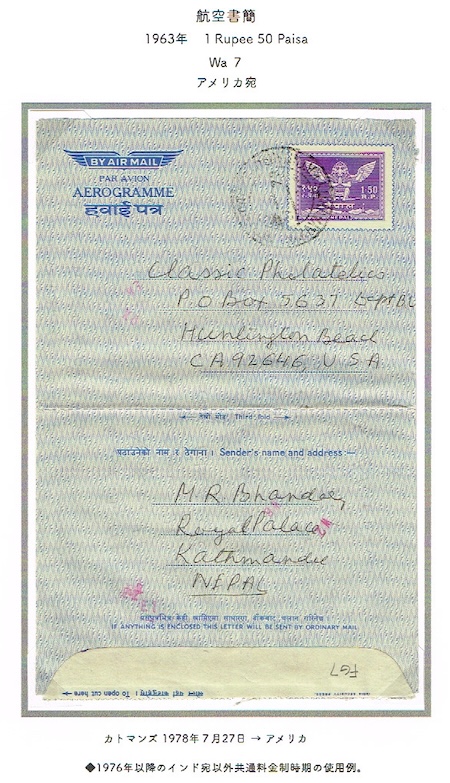 航空書簡
1963年 1 Rupee 50 Paisa
Wa 7
アメリカ宛
BY AIR MAIL
PAR AVION
AEROGRAMME
हवाई पत्र
1·50
N.P.
नेपाल
Classic Philatelics
P O Box 5637 Dept BL
Huntington Beach
CA 92646, U S A
तेस्रो मोड़ Third fold
पठाउनेको नाम र ठेगाना । Sender's name and address:—
M. R. Bhandari,
Royal Palace
Kathmandu
NEPAL
IF ANYTHING IS ENCLOSED THIS LETTER WILL BE SENT BY ORDINARY MAIL
FG7
To open cut here
INDIA SECURITY PRESS
カトマンズ 1978年7月27日 → アメリカ
◆1976年以降のインド宛以外共通料金制時期の使用例。